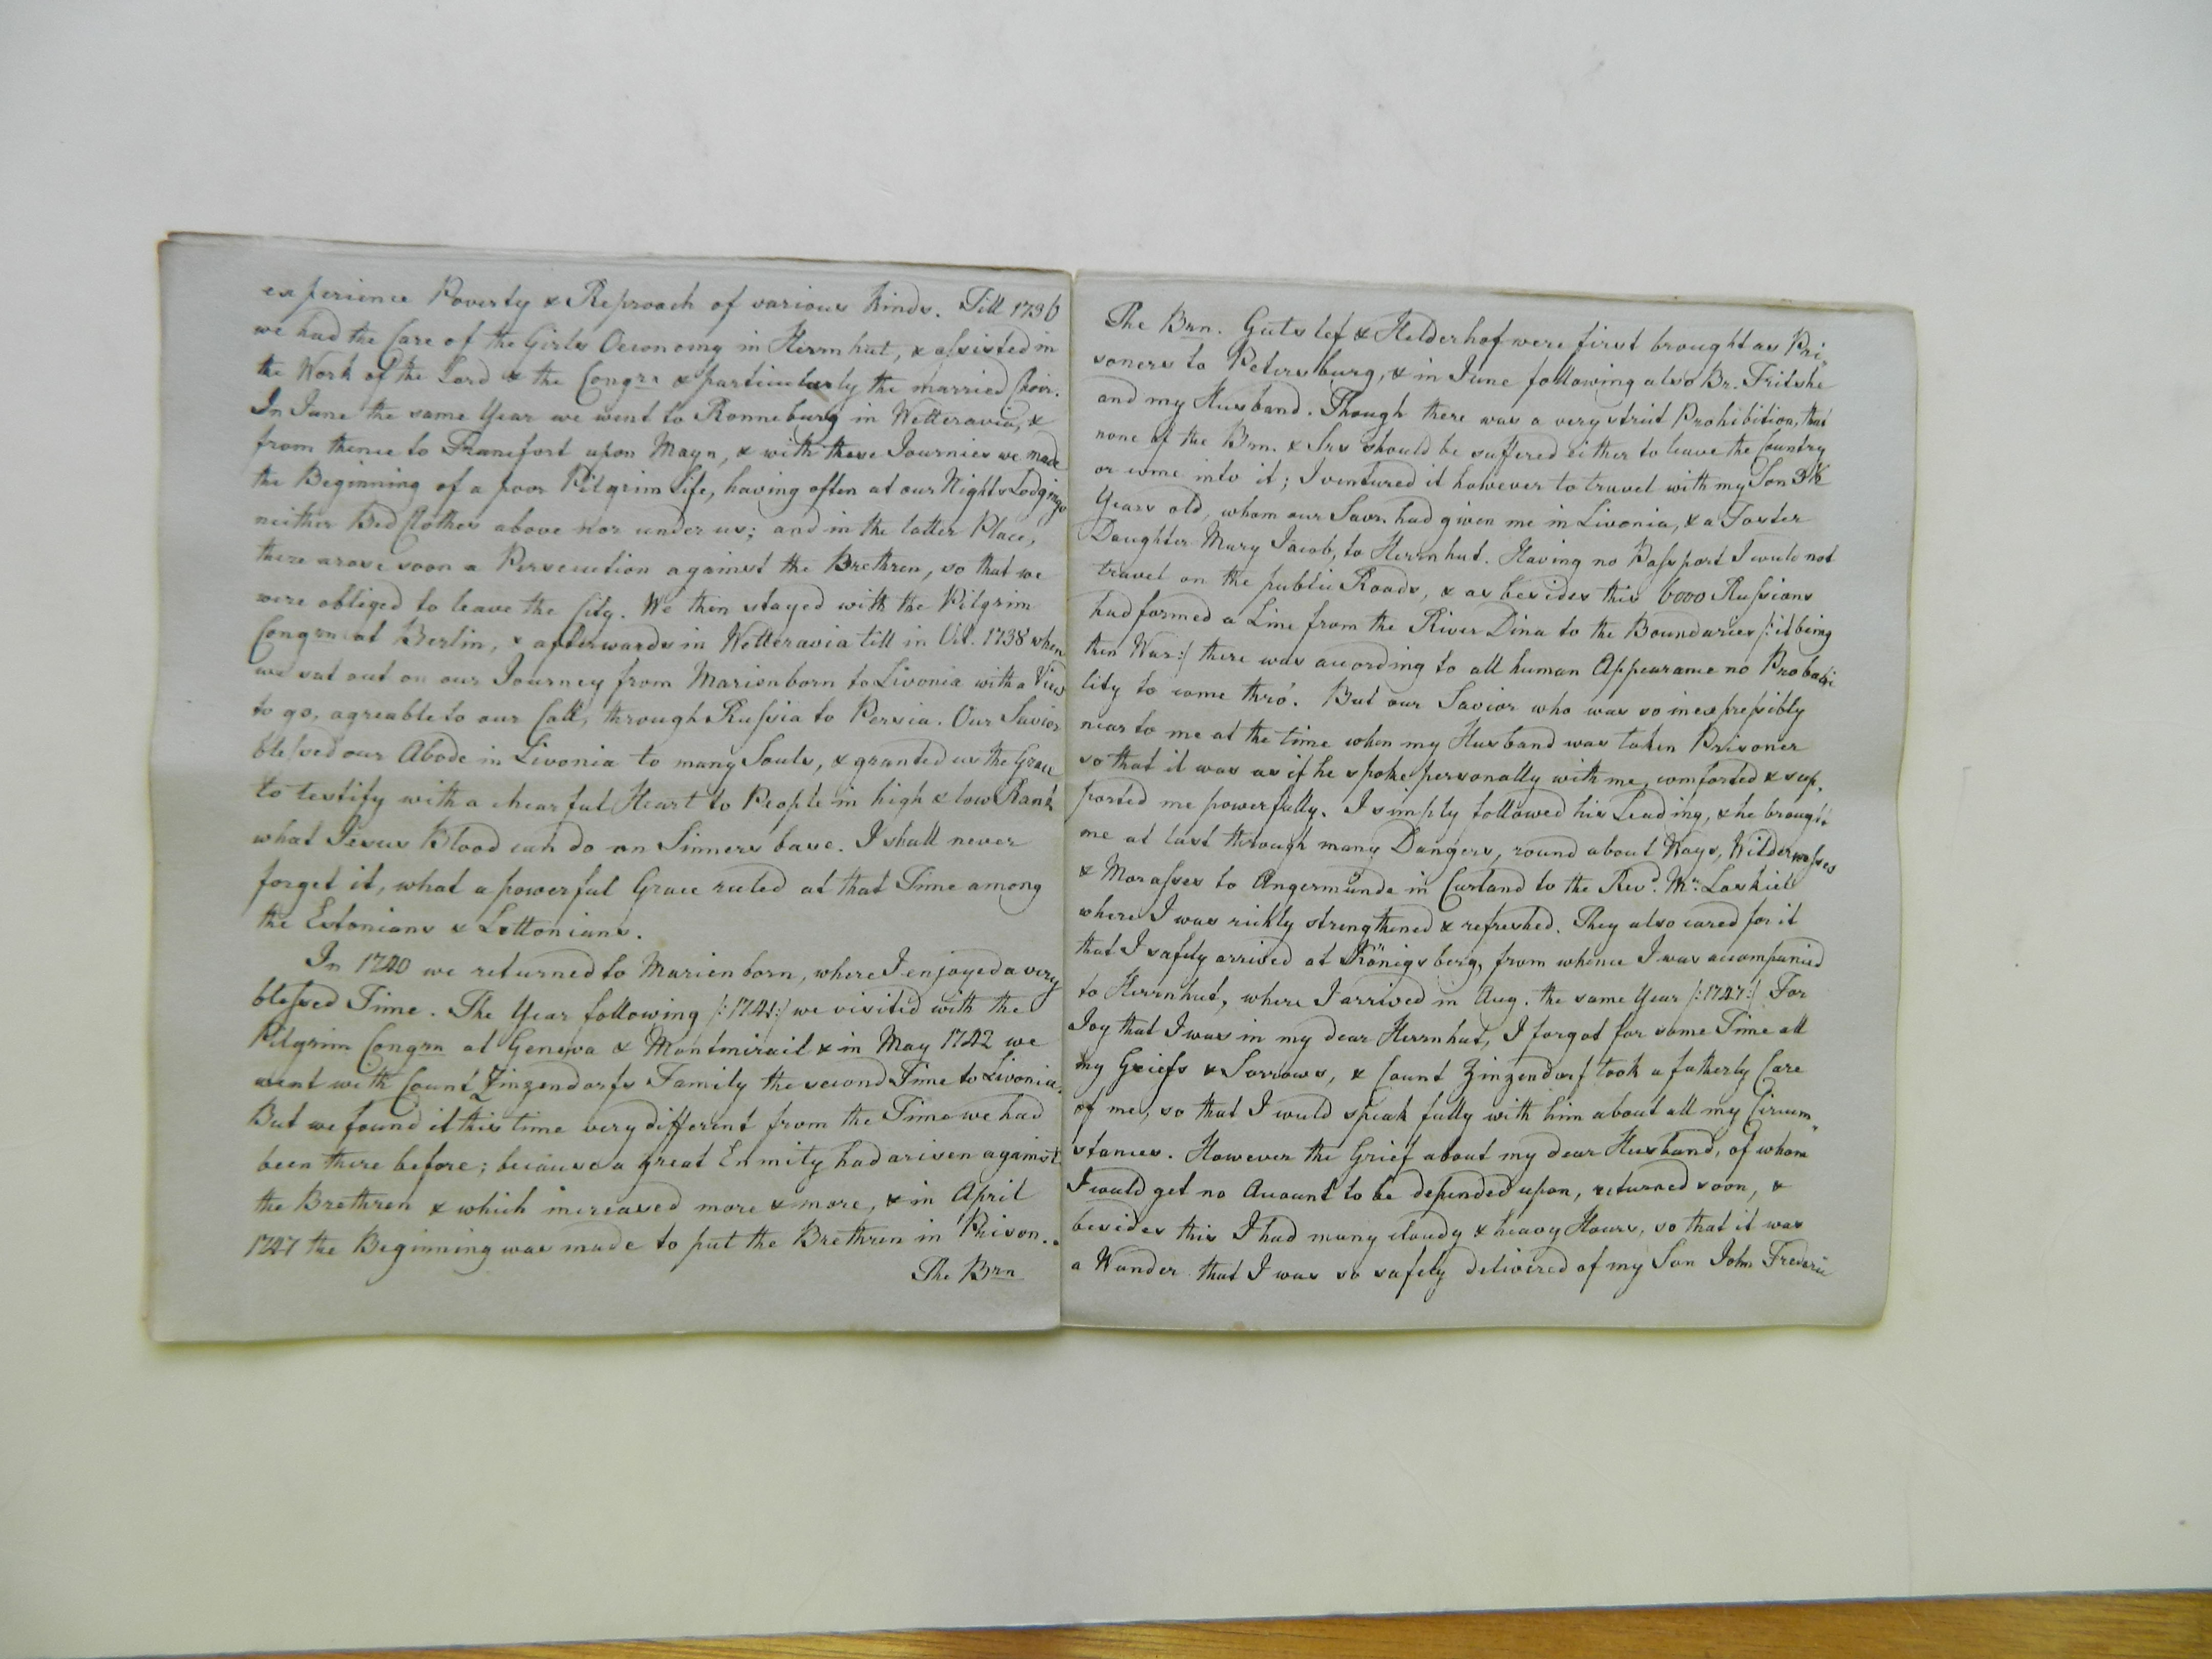 experience Poverty & Reproach of various Kinds. Till 1736
we had the Care of the Girls Oeconomy in Herrnhut, & assisted in
the Work of the Lord & the Congrn & particularly the married Choir.
In June the same Year we went to Ronneburg in Wetteravia, &
from thence to Francfort upon Mayn, & with these Journies we made
the Beginning of a poor Pilgrim Life, having often at our Nights Lodgings
neither Bed Clothes above nor under us; and in the latter Place,
there arose soon a Persecution against the Brethren, so that we
were obliged to leave the City. We then stayed with the Pilgrim
Congrn at Berlin, & afterwards in Wetteravia till in Oct. 1738 when
we sat out on our Journey from Marienborn to Livonia with a View
to go, agreable to our Call, through Russia to Persia. Our Savior
blessed our Abode in Livonia to many Souls, & granted us the Grace
to testify with a chearful Heart to People in high & low Rank
what Jesus Blood can do on Sinners base. I shall never
forget it, what a powerful Grace ruled at that Time among
the Estonians & Lettonians.
In 1740 we returned to Marienborn, where I enjoyed a very
blessed Time. The Year following /:1741:/ we visited with the
Pilgrim Congrn at Geneva & Montmirail & in May 1742 we
went with Count Zinzendorfs Family the second Time to Livonia.
But we found it this time very different from the Time we had
been there before; because a great Enmity had arisen against
the Brethren & which increased more & more, & in April
1747 the Beginning was made to put the Brethren in Prison.
The Brn
The Brn. Gutslef & Helderhof were first brought as Pri-
soners to Petersburg, & in June following also Br. Fritshe
and my Husband. Though there was a very strict Prohibition, that
none of the Brn. & Srs should be suffered either to leave the Country
or come into it; I ventured it however to travel with my Son
Years old, whom our Savr. had given me in Livonia, & a Foster
Daughter Mary Jacob, to Herrnhut. Having no Passport I could not
travel on the public Roads, & as besides this 6000 Russians
had formed a Line from the River Dina to the Boundaries /:it being
then War:/ there was according to all human Appearance no Probabi
lity to come thro'. But our Savior who was so inexpressibly
near to me at the time when my Husband was taken Prisoner
so that it was as if he spoke personally with me, comforted & sup-
ported me powerfully. I simply followed his Leading, & he brought
me at last through many Dangers, round about Ways, Wildernesses
& Morasses to Angermünde in Curland to the Revd. Mr. Loskiel
where I was richly strengthened & refreshed. They also cared for it
that I safely arrived at Königsberg, from whence I was accompanied
to Herrnhut, where I arrived in Aug. the same Year /:1747:/ For
Joy that I was in my dear Herrnhut, I forgot for some Time all
my Griefs & Sorrows, & Count Zinzendorf took a fatherly Care
of me, so that I could speak fully with him about all my Circum-
stances. However the Grief about my dear Husband, of whom
I could get no Account to be depended upon, returned soon, &
besides this I had many cloudy & heavy Hours, so that it was
a Wonder that I was so safely delivered of my Son John Frederic